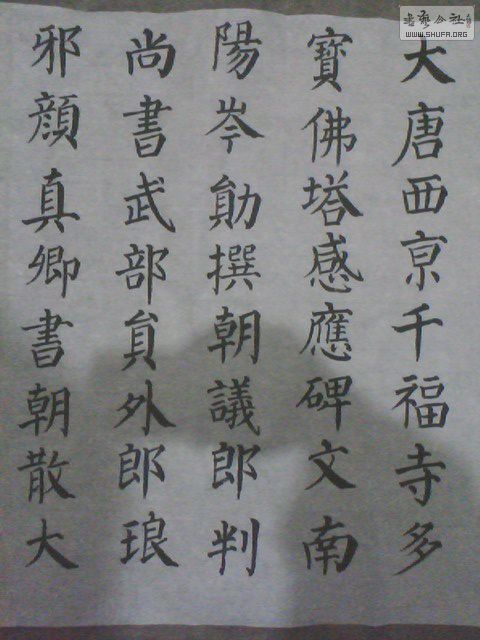 大唐西京千福寺多
寶佛塔感應碑文南
陽岑勛撰朝議郎判
尚書武部員外郎琅
邪顏真卿書朝散大
書藝公社
WWW.SHUFA.ORG